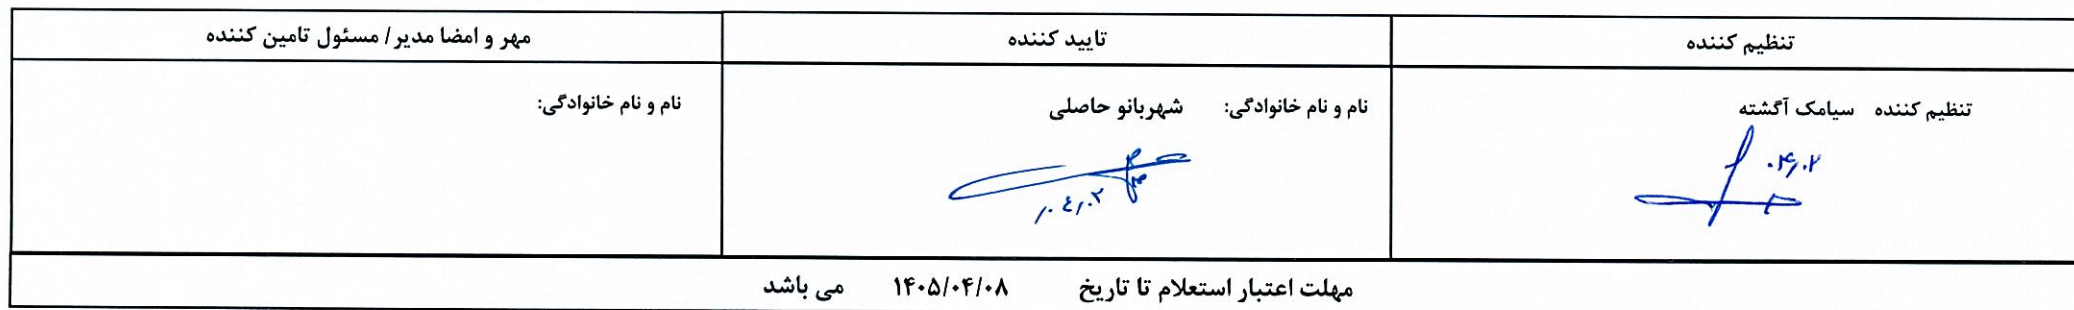 تنظیم کننده
تایید کننده
مهر و امضا مدیر/ مسئول تامین کننده
تنظیم کننده سیامک آگشته
۰۴٫۰۲
نام و نام خانوادگی: شهربانو حاصلی
۰۴٫۰۲
نام و نام خانوادگی:
مهلت اعتبار استعلام تا تاریخ ۱۴۰۵/۰۴/۰۸ می باشد